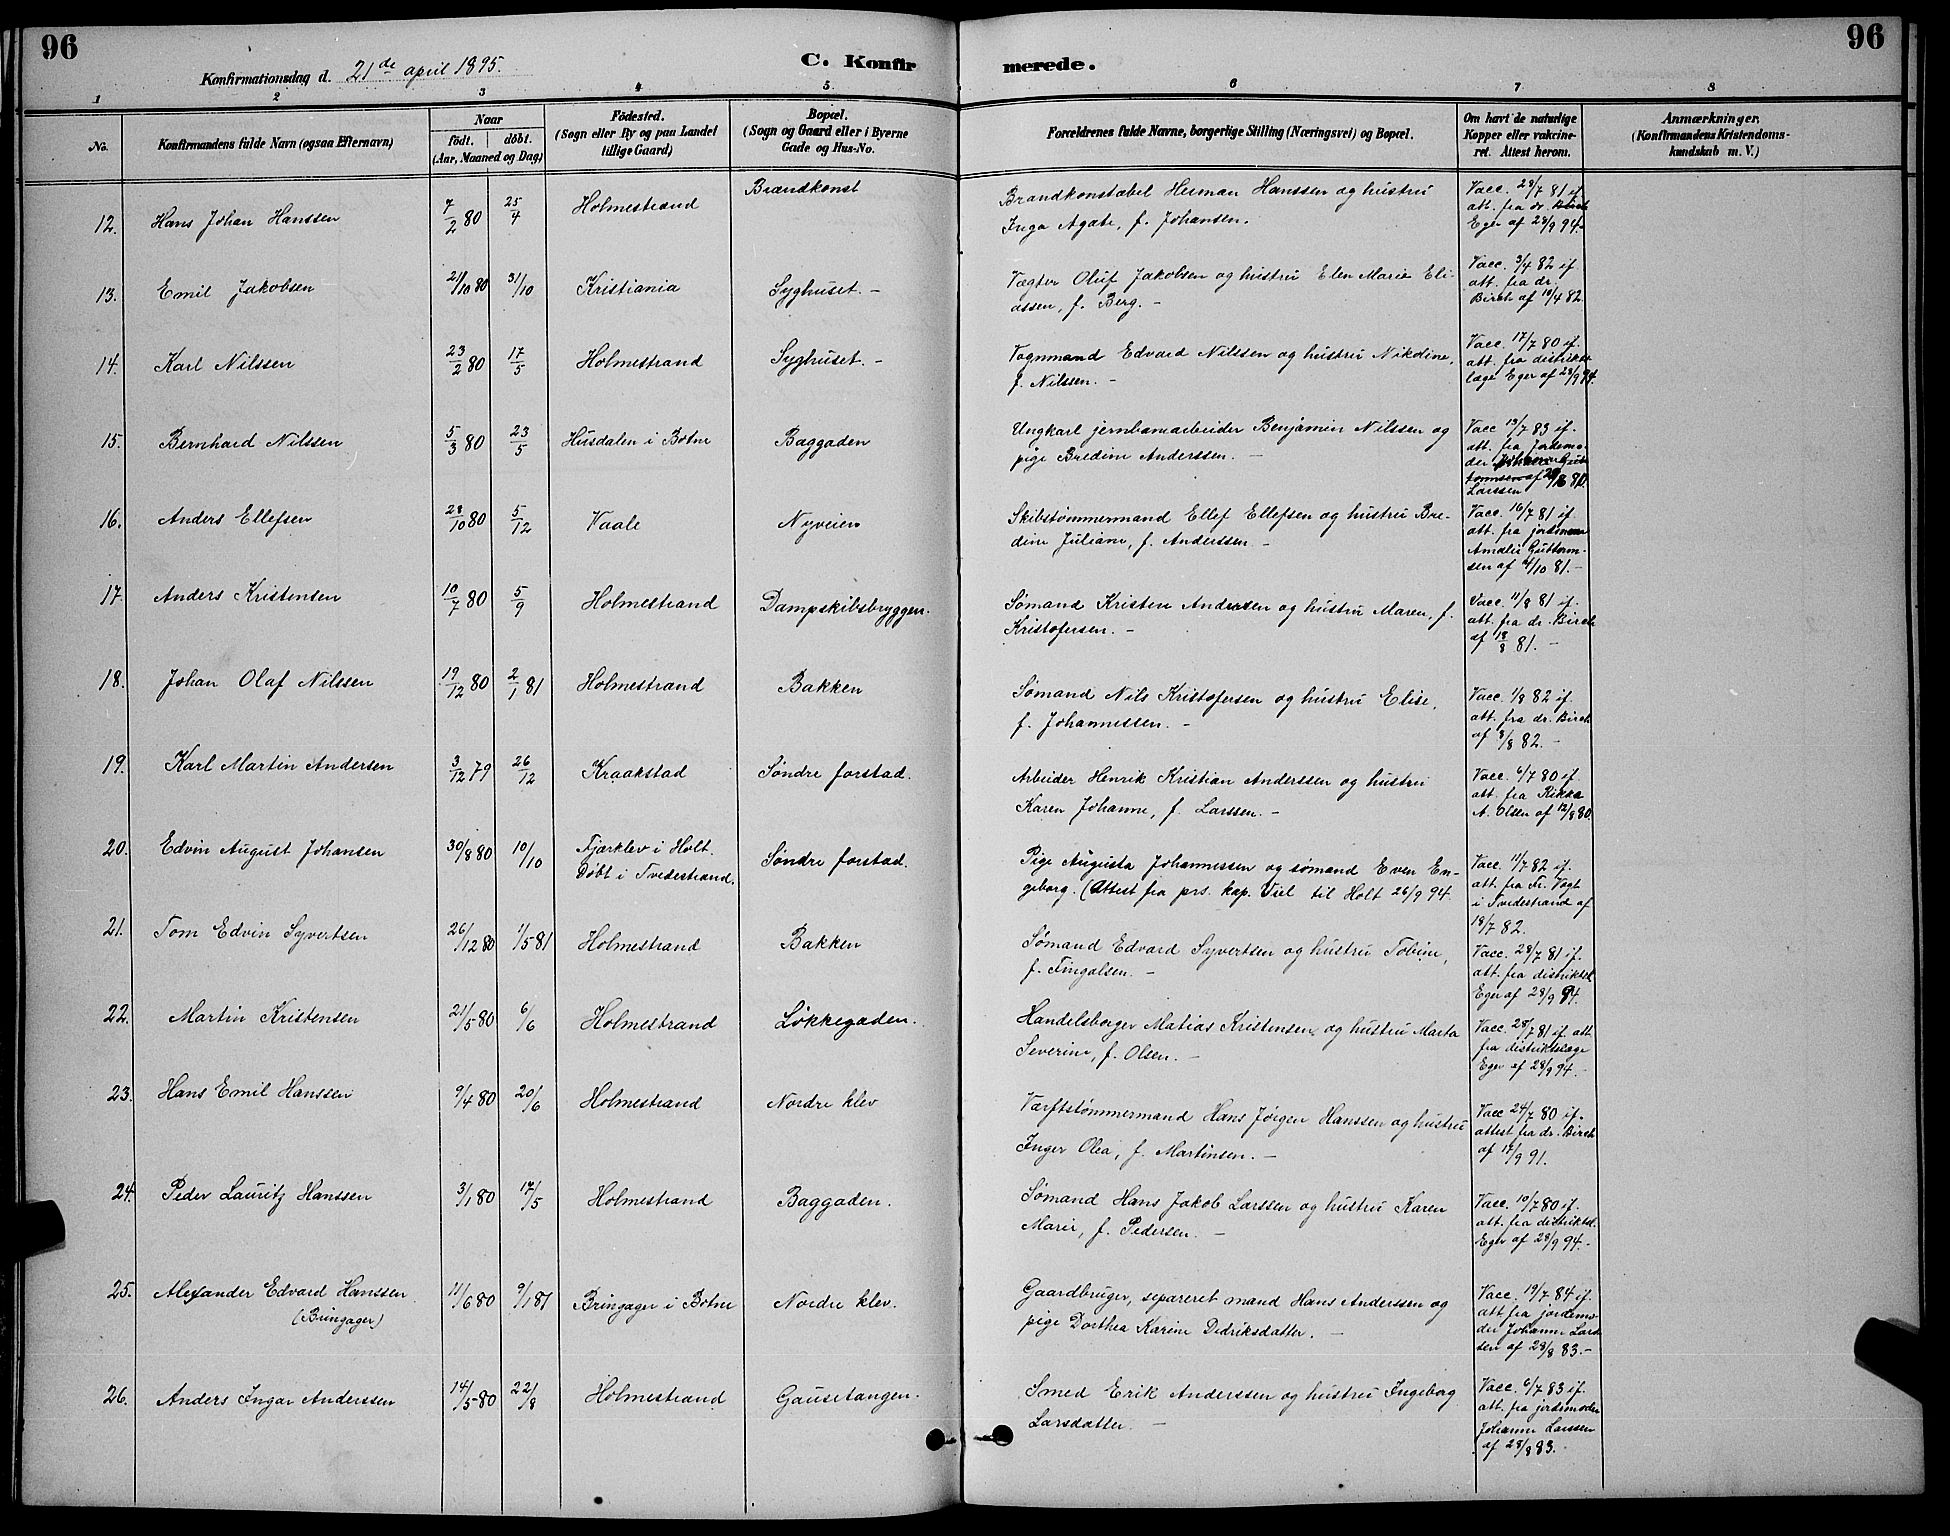 96
96
Konfirmationsdag d. 21de april 1895.
C. Konfirmerede.
1 2 3 4 5. 6 7 8
No.
Konfirmandens fulde Navn (ogsaa Efternavn)
Naar
født. døbt.
(Aar, Maaned og Dag)
Fødested.
(Sogn eller By og paa Landet
tillige Gaard)
Bopæl.
(Sogn og Gaard eller i Byerne
Gade og Hus-No.
Forældrenes fulde Navne, borgerlige Stilling (Næringsvei) og Bopæl.
Om havt de naturlige
Kopper eller vakcine-
ret. Attest herom.
Anmærkninger.
(Konfirmandens Kristendoms-
kundskab m. V.)
12. Hans Johan Hanssen 7/2 80 25/4 Holmestrand Brandkonst
Brandkonstabel Herman Hanssen og hustru
Inga Agate, f. Johansen.
Vacc. 28/7 81 if.
att. fra dr. Birch
Eger af 28/9 94.
13. Emil Jakobsen 21/10 80 31/10 Kristiania Syghuset. -
Vægter Oluf Jakobsen og hustru Elen Marie Eli-
assen, f. Berg. -
Vacc. 3/4 82 if.
att. fra dr.
Birch af 10/4 82.
14. Karl Nilssen 23/2 80 17/5 Holmestrand Syghuset. -
Vognmand Edvard Nilssen og hustru Nikoline,
f. Nilssen. -
Vacc. 17/7 80 if.
att. fra distrikts
læge Eger af 28/9 94.
15. Bernhard Nilssen 5/3 80 23/5 Husdalen i Botne Baggaden
Ungkarl jernbanarbeider Benjamin Nilssen og
pige Bredine Anderssen. -
Vacc 19/7 83 if.
att. fra Jordemo-
der
Larssen
16. Anders Ellefsen 28/10 80 5/12 Vaale Nyveien
Skibstømmermand Ellef Ellefsen og hustru Bre-
dine Juliane, f. Anderssen. -
Vacc. 16/7 81 if.
att. fra jordemor
Amalie Guttorm-
sen af 4/10 81. -
17. Anders Kristensen 10/7 80 5/9 Holmestrand Dampskibsbryggen.
Sømand Kristen Andersen og hustru Maren, f.
Kristofersen. -
Vacc. 11/8 81 if.
att. fra dr. Birch
af 18/8 81. -
18. Johan Olaf Nilssen 19/12 80 2/1 81 Holmestrand Bakken
Sømand Nils Kristofersen og hustru Elise,
f. Johannessen. -
Vacc. 1/8 82 if.
att. fra dr. Birch
af 8/8 82. -
19. Karl Martin Andersen 3/12 79 26/12 Kraakstad Søndre forstad.
Arbeider Henrik Kristian Anderssen og hustru
Karen Johanne, f. Larssen. -
Vacc. 6/7 80 if.
att. fra Rikka
A. Olsen af 12/8 80.
20. Edvin August Johansen 30/8 80 10/10 Fjærklev i Holt.
Døbt i Tvedestrand. Søndre forstad.
Pige Augusta Johannessen og sømand Even En-
geborg. (Attest fra prs. kap. Viel til Holt 26/9 94.
Vacc. 11/7 82 if.
att. fra Fr. Vogt
i Tvedestrand af
18/7 82.
21. Tom Edvin Syvertsen 26/12 80 1/5 81 Holmestrand Bakken
Sømand Edvard Syvertsen og hustru Tobine,
f. Fingalsen. -
Vacc. 28/7 81 if.
att. fra distriktsl.
Eger af 28/9 94.
22. Martin Kristensen 21/5 80 6/6 Holmestrand Løkkegaden.
Handelsborger Matias Kristensen og hustru Marta
Severine, f. Olsen. -
Vacc. 28/7 81 if. att.
fra distriktslæge
Eger af 28/9 94. -
23. Hans Emil Hanssen 9/4 80 20/6 Holmestrand Nordre klev
Værftstømmermand Hans Jørgen Hanssen og hustru
Inger Olea, f. Martinsen. -
Vacc 24/7 80 if.
attest fra dr. Birch
af 17/9 91.
24. Peder Lauritz Hanssen 3/1 80 17/5 Holmestrand Baggaden.
Sømand Hans Jakob Larssen og hustru Karen
Marie, f. Pedersen. -
Vacc. 10/7 80 if.
att. fra distriktsl.
Eger af 28/9 94. -
25. Alexander Edvard Hanssen
(Bringager) 11/6 80 9/1 81 Bringager i Botne Nordre klev.
Gaardbruger, separeret mand Hans Anderssen og
pige Dorthea Karine Dedriksdatter. -
Vacc. 19/7 84 if.
att fra jordemo-
der Johanne Lars-
sen af 28/8 83. -
26. Anders Ingar Anderssen 14/5 80 22/8 Holmestrand Gausetangen.
Smed Erik Anderssen og hustru Ingeborg
Larsdatter. -
Vacc. 6/7 83 if.
att. fra jordemoder
Johanne Larssen
af 28/8 83. -